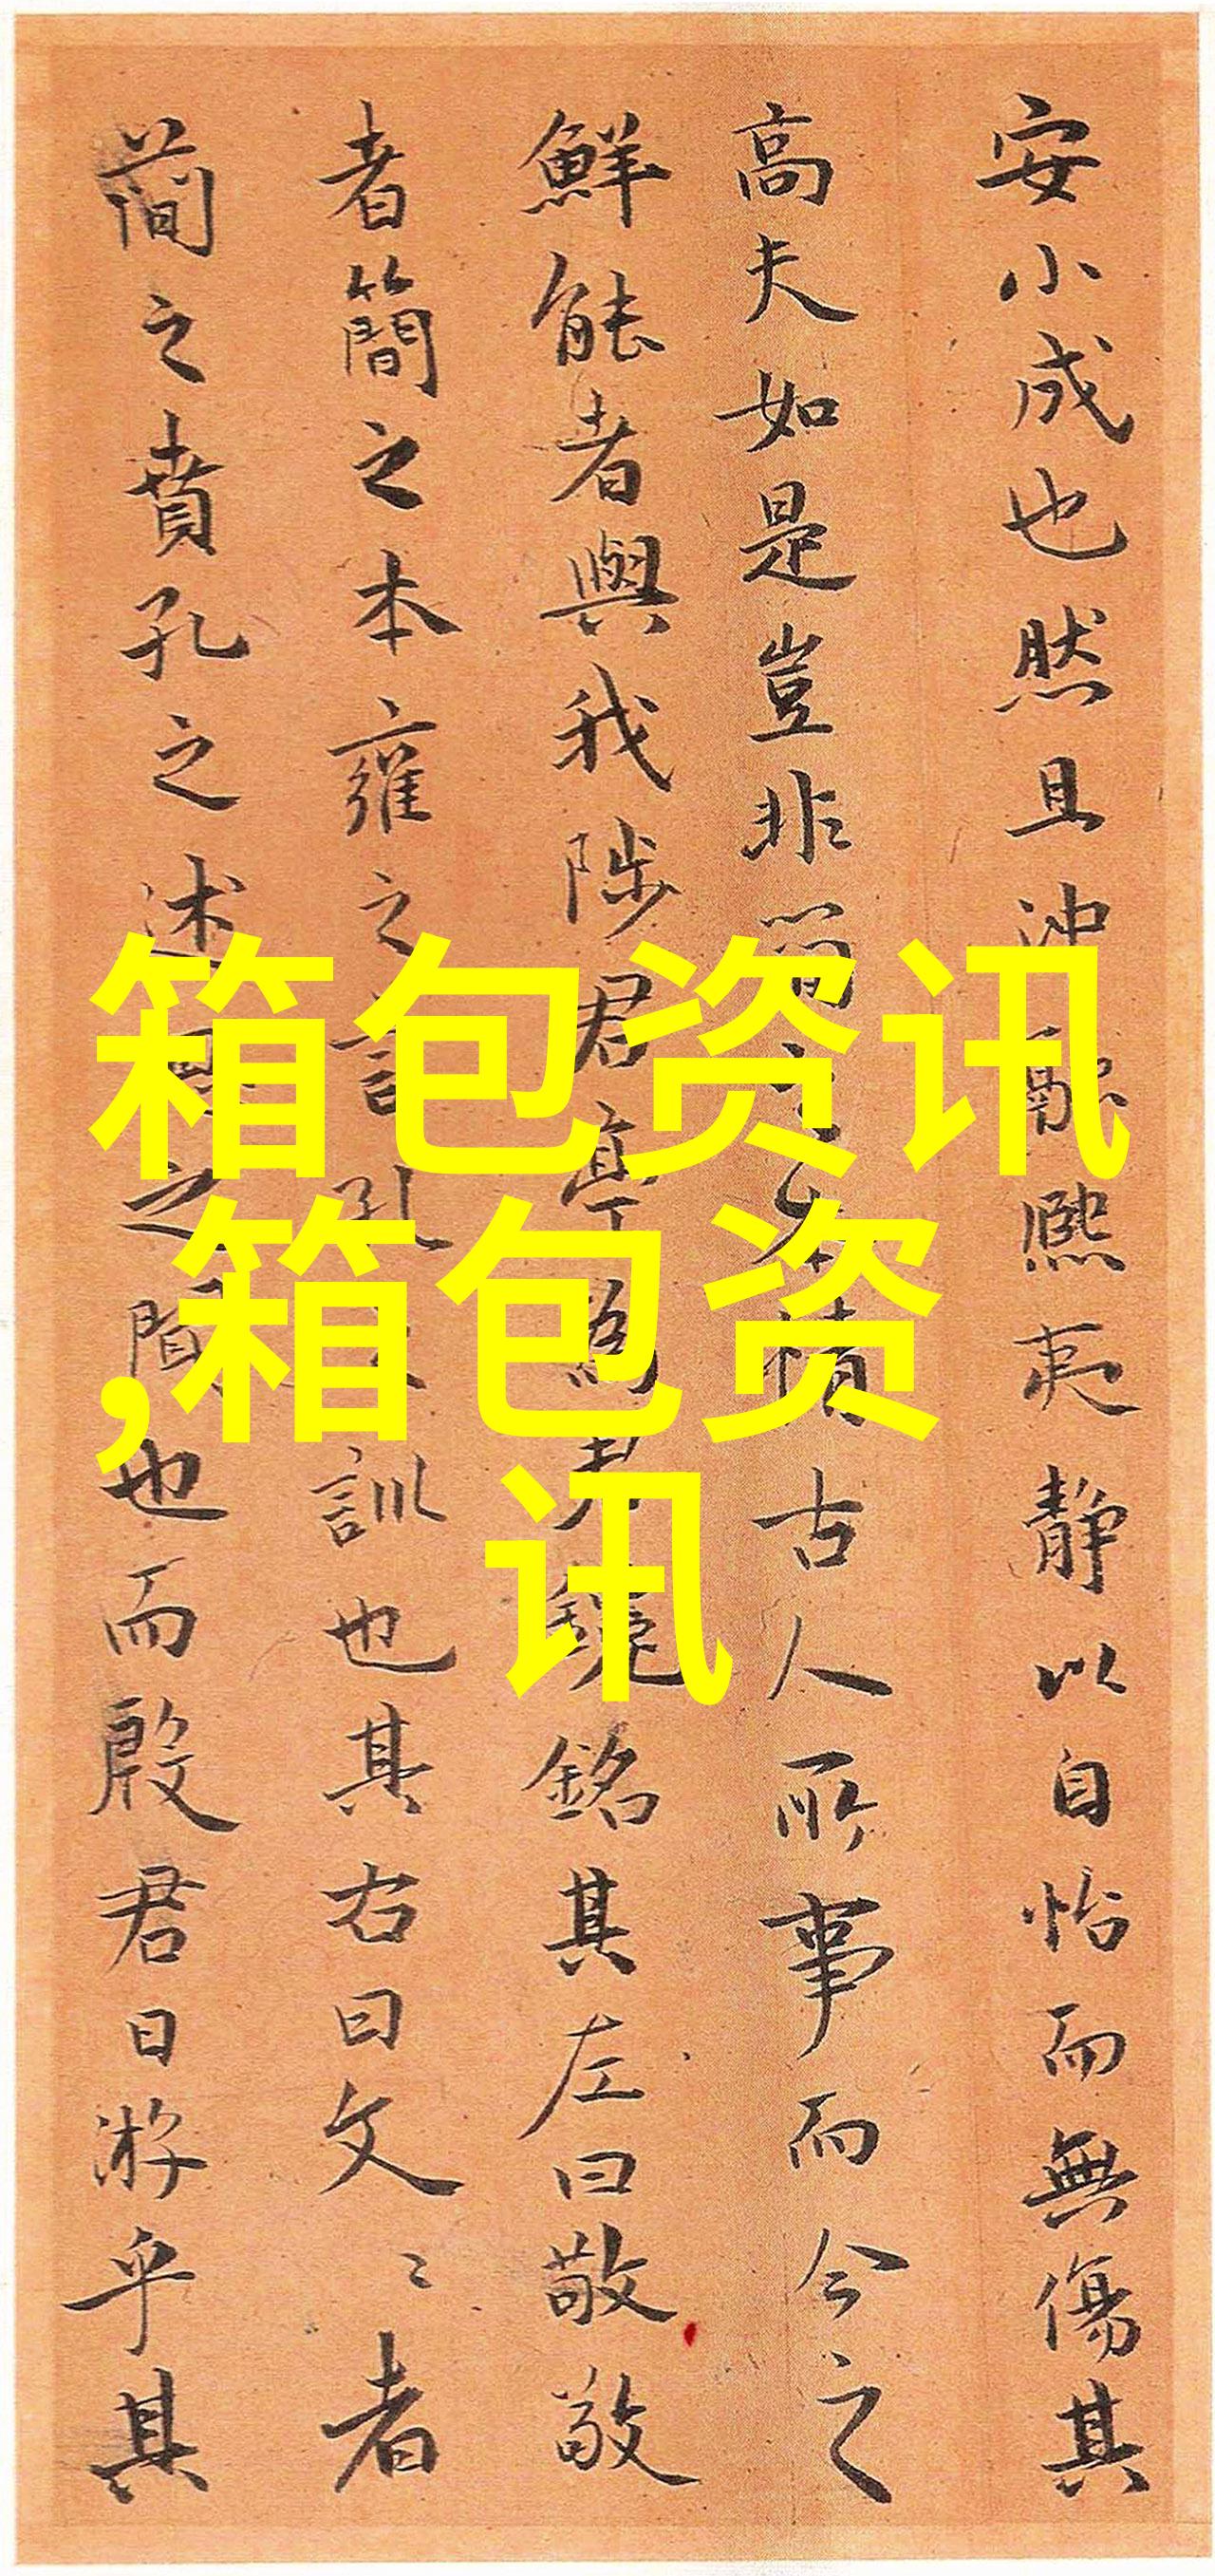 安小成也然且沖融熙夷静以自怡而無傷其
高夫如是豈非簡之本情古人所事而今之
鮮能者與我陟君亭
銘其左曰敬敬
者簡之本雍之言孔之訓也其右曰文〻者
簡之賁孔之述
之間也而殷君日游乎其
箱包资讯
,箱包资
讯